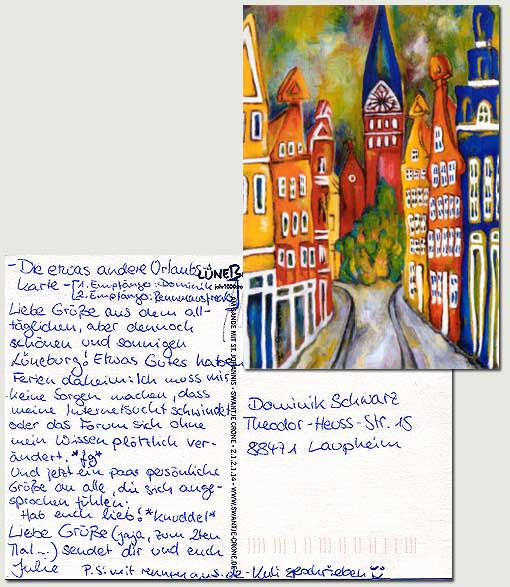 - Die etwas andere Urlaubs-
karte - 1. Empfänger: Dominik
2. Empfänger:
Liebe Grüße aus dem all-
täglichen, aber dennoch
schönen und sonnigen
Lüneburg! Etwas Gutes haben
Ferien daheim: Ich muss mir
keine Sorgen machen, dass
meine Internetsucht schwindet
oder das Forum sich ohne
mein Wissen plötzlich ver-
ändert. *fg*
Und jetzt ein paar persönliche
Grüße an alle, die sich ange-
sprochen fühlen:
Hab euch lieb! *knuddel*
Liebe Grüße (jaja, zum 2ten
Mal...) sendet dir und euch
Julie P.S: mit -Kuli geschrieben
LÜNEB
AM SANDE MIT ST. JOHANNIS • SWANTJE CRONE • 2.1.2.1.14 • WWW.SWANTJE-CRONE.DE
Dominik Schwarz
Theodor-Heuss-Str. 15
88471 Laupheim